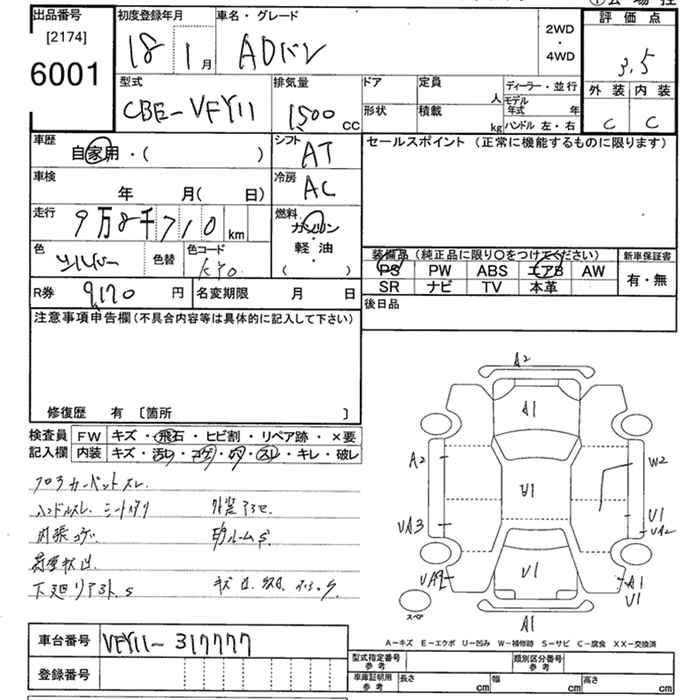 出品番号
[2174]
6001
初度登録年月
18 1月
車名・グレード
ADバン
2WD
・
4WD
評価点
3.5
外装 内装
C C
型式
CBE-VFY11
排気量
1500 CC
ドア 定員 人
形状 積載 kg
ディーラー・並行
モデル年式 年
ハンドル 左・右
車歴
自家用・( )
シフト
AT
セールスポイント (正常に機能するものに限ります)
車検
年 月( 日)
冷房
AC
走行
9万8千710 km
燃料
ガソリン
・
軽・油
( )
色
シルバー
色替
色コード
KY0
装備品 (純正品に限り○をつけてください)
新車保証書
PS PW ABS エアB AW
SR ナビ TV 本革
有・無
R券 9,170 円
名変期限 月 日
後日品
注意事項申告欄(不具合内容等は具体的に記入して下さい)
修復歴 有 [箇所 ]
検査員
記入欄
FW キズ・飛石・ヒビ割・リペア跡・×要
内装 キズ・汚レ・コゲ・穴・スレ・キレ・破レ
フロアカーペットスレ.
ハンドルスレ. シート
内張コゲ
荷室
下廻リ S
A2
A1
A2
W2
U1
UA3
U1
UA2
U1
A1
U1
A1
スペア
A-キズ E-エクボ U-凹み W-補修跡 S-サビ C-腐食 XX-交換済
車台番号 VFY11-317777
登録番号
型式指定番号
参考
類別区分番号
参考
車庫証明用
参考
長さ cm 幅 cm 高さ cm